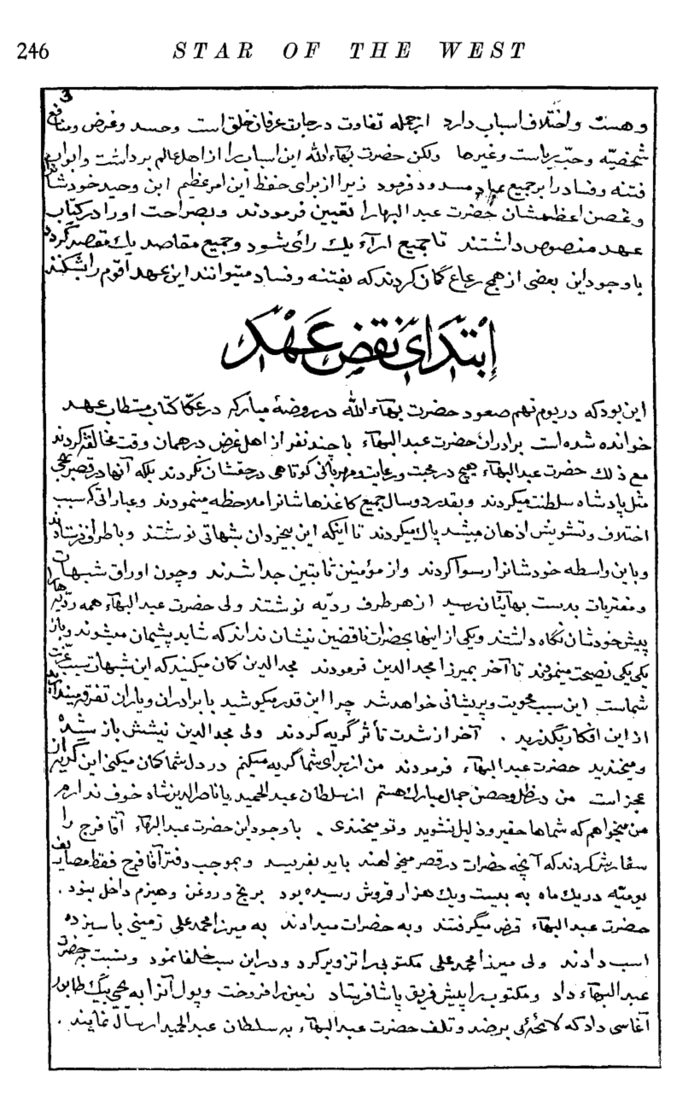 246 STAR OF THE WEST
و هست و اختلاف اسباب دارد ازجمله تفاوت درجات عرفان خلق است و حسد و غرض و منافع
شخصیّه و حبّ ریاست و غیرها ولکن حضرت بهآءالله این اسباب را از اهل عالم برداشت و ابواب
فتنه و فساد را بر جمیع عباد مسدود فرمود زیرا از برای حفظ این امر عظیم ابن وحید خودشان
و غصن اعظمشان حضرت عبد البهآ را تعیین فرمودند و بصراحت او را در کتاب
عهد منصوص داشتند تا جمیع ارآء یک رای شود و جمیع مقاصد یک مقصد گردد
با وجود این بعضی از همج رعاع گمان کردند که بفتنه و فساد میتوانند این عهد اقوم را بشکنند
اِبتدای نقض عَهْد
این بود که در یوم نهم صعود حضرت بهآءالله در روضهٔ مبارکه در عکّا کتاب مستطاب عهد
خوانده شده است برادران حضرت عبد البهآء با چند نفر از اهل غرض در همان وقت مخالفت کردند
مع ذلک حضرت عبد البهآء هیچ در محبت و رعایت و مهربانی کوتاهی در حقشان نکردند بلکه آنها در قصر بهجی
مثل پادشاه سلطنت میکردند و بقدر دو سال جمیع کاغذهاشانرا ملاحظه مینمودند و عباراتی که سبب
اختلاف و تشویش اذهان میشد پاک میکردند تا اینکه این بیخردان بشهاتی نوشتند و باطراف فرستادند
و باین واسطه خودشانرا رسوا کردند و از مؤمنین ثابتین جدا شدند و چون اوراق شبهات
و مفتریات بدست بهائیان رسید از هر طرف ردّیه نوشتند ولی حضرت عبد البهآء همه ردّیه‌ها را
پیش خودشان نگاه داشتند و یکی از اینها بحضرات ناقضین نشان نداند که شاید پشیمان میشوند و باز
یکی یکی نصیحت مینمودند تا آخر بمیرزا مجد الدین فرمودند مجد الدین گمان میکنید که این شبهات سبب عزّت
شماست این سبب محویت و پریشانی خواهد شد چرا این قدر میکوشید با برادران و یاران تفرقه میندازید
از این افکار بگذرید . آخر از شدت تأثر گریه کردند ولی مجد الدین نیشش باز شده
و میخندید حضرت عبد البهآء فرمودند من از برای شما گریه میکنم در دل شما گمان میکنی این گریه از
عجز است من در ظل و حصن جمال مبارک هستم از سلطان عبد الحمید یا ناصر الدین شاه خوف ندارم
من میخواهم که شماها حقیر و ذلیل نشوید و تو میخندی . با وجود این حضرت عبد البهآء آقا فرج را
سفارش کردند که آنچه حضرات در قصر میخواهند باید بفرستید و بموجب دفتر آقا فرج فقط مصاریف
یومیّه در یک ماه به بیست و یک هزار قروش رسیده بود برنج و روغن و هیزم داخل نبود .
حضرت عبد البهآء قرض میگرفتند و به حضرات میدادند به میرزا محمد علی زمینی با سیزده
اسب دادند ولی میرزا محمد علی مکتوبی را تزویر کرد و در این سبب خلقا نمود و نسبت به حضرت
عبد البهآء داد و مکتوب را پیش فریق پاشا فرستاد زمین را فروخت و پول آنرا به یحیی بیک طابور
آغاسی داد که لائحهٔ بر ضد و تلف حضرت عبد البهآء به سلطان عبد الحمید ارسال نمایند .